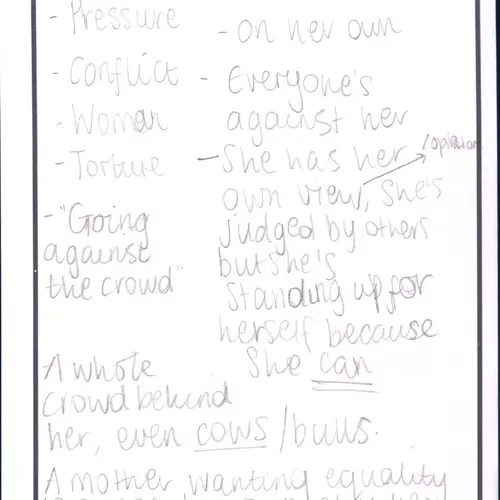 - Pressure
- Conflict
- Woman
- Torture
- "Going
against
the crowd"
- on her own
- Everyone's
against her
- She has her /opinion
own view, she's
judged by others
but she's
standing up for
herself because
she can
A whole
crowd behind
her, even cows/bulls.
A mother wanting equality